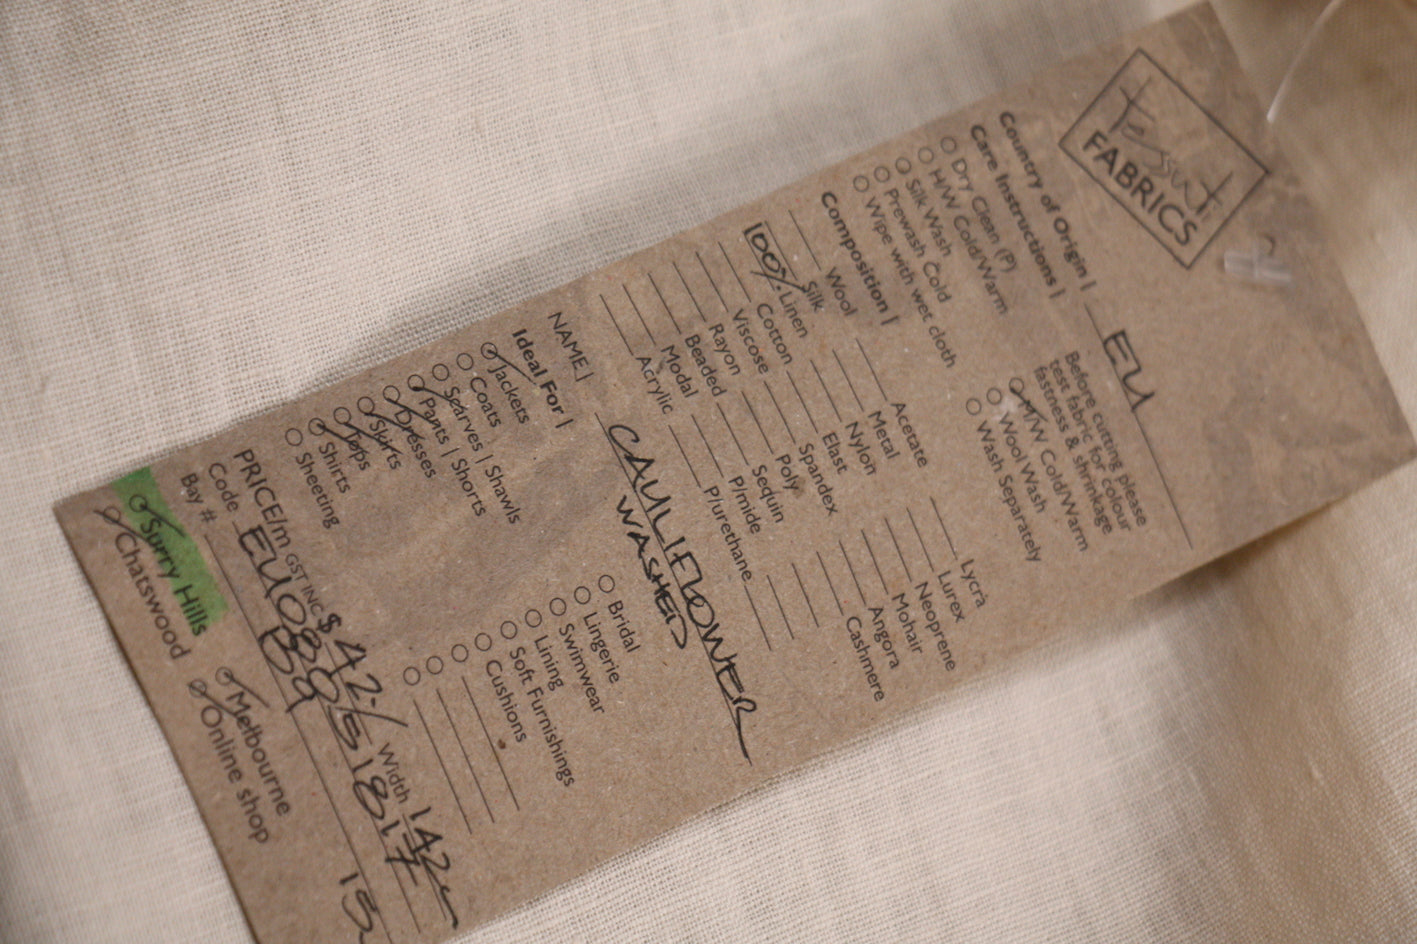 Tessuti
FABRICS
Country of Origin | EU
Care Instructions |
Dry Clean (P)
H/W Cold/Warm
Silk Wash
Prewash Cold
Wipe with wet cloth
Before cutting please
test fabric for colour
fastness & shrinkage
M/W Cold/Warm
Wool Wash
Wash Separately
Composition |
Wool
Silk
100% Linen
Cotton
Viscose
Rayon
Beaded
Modal
Acrylic
Acetate
Metal
Nylon
Elast
Spandex
Poly
Sequin
P/mide
P/urethane
Lycra
Lurex
Neoprene
Mohair
Angora
Cashmere
NAME | CAULIFLOWER
WASHED
Ideal For |
Jackets
Coats
Scarves | Shawls
Pants | Shorts
Dresses
Skirts
Tops
Shirts
Sheeting
Bridal
Lingerie
Swimwear
Lining
Soft Furnishings
Cushions
PRICE/m GST INC $42-/ Width 142
Code
Bay #
Surry Hills
Chatswood
Melbourne
Online shop